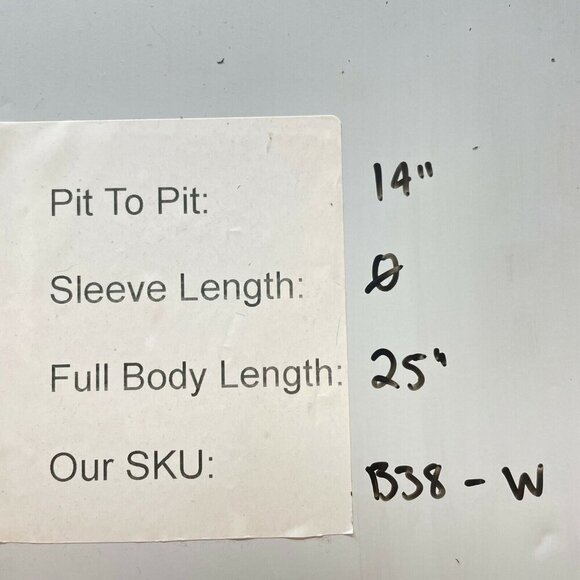 Pit To Pit: 14"
Sleeve Length: Ø
Full Body Length: 25"
Our SKU: B38 - W